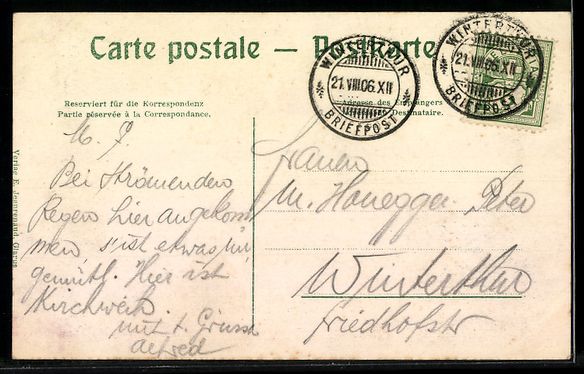 Carte postale — Postkarte
WINTERTHUR
21.VIII.06.XII
BRIEFPOST
WINTERTHUR
21.VIII.06.XII
BRIEFPOST
Reserviert für die Korrespondenz
Partie réservée à la Correspondance.
Adresse des Empfängers
Destinataire.
M. P.
Bei strömenden
Regen hier angekom
men, s'ist etwas un
gemütl. Hier ist
Kirchweih.
mit
Alfred
Frauen
M. Honegger Peter
Winterthur
Friedhofstr
Verlag E. Jeanrenaud, Glarus